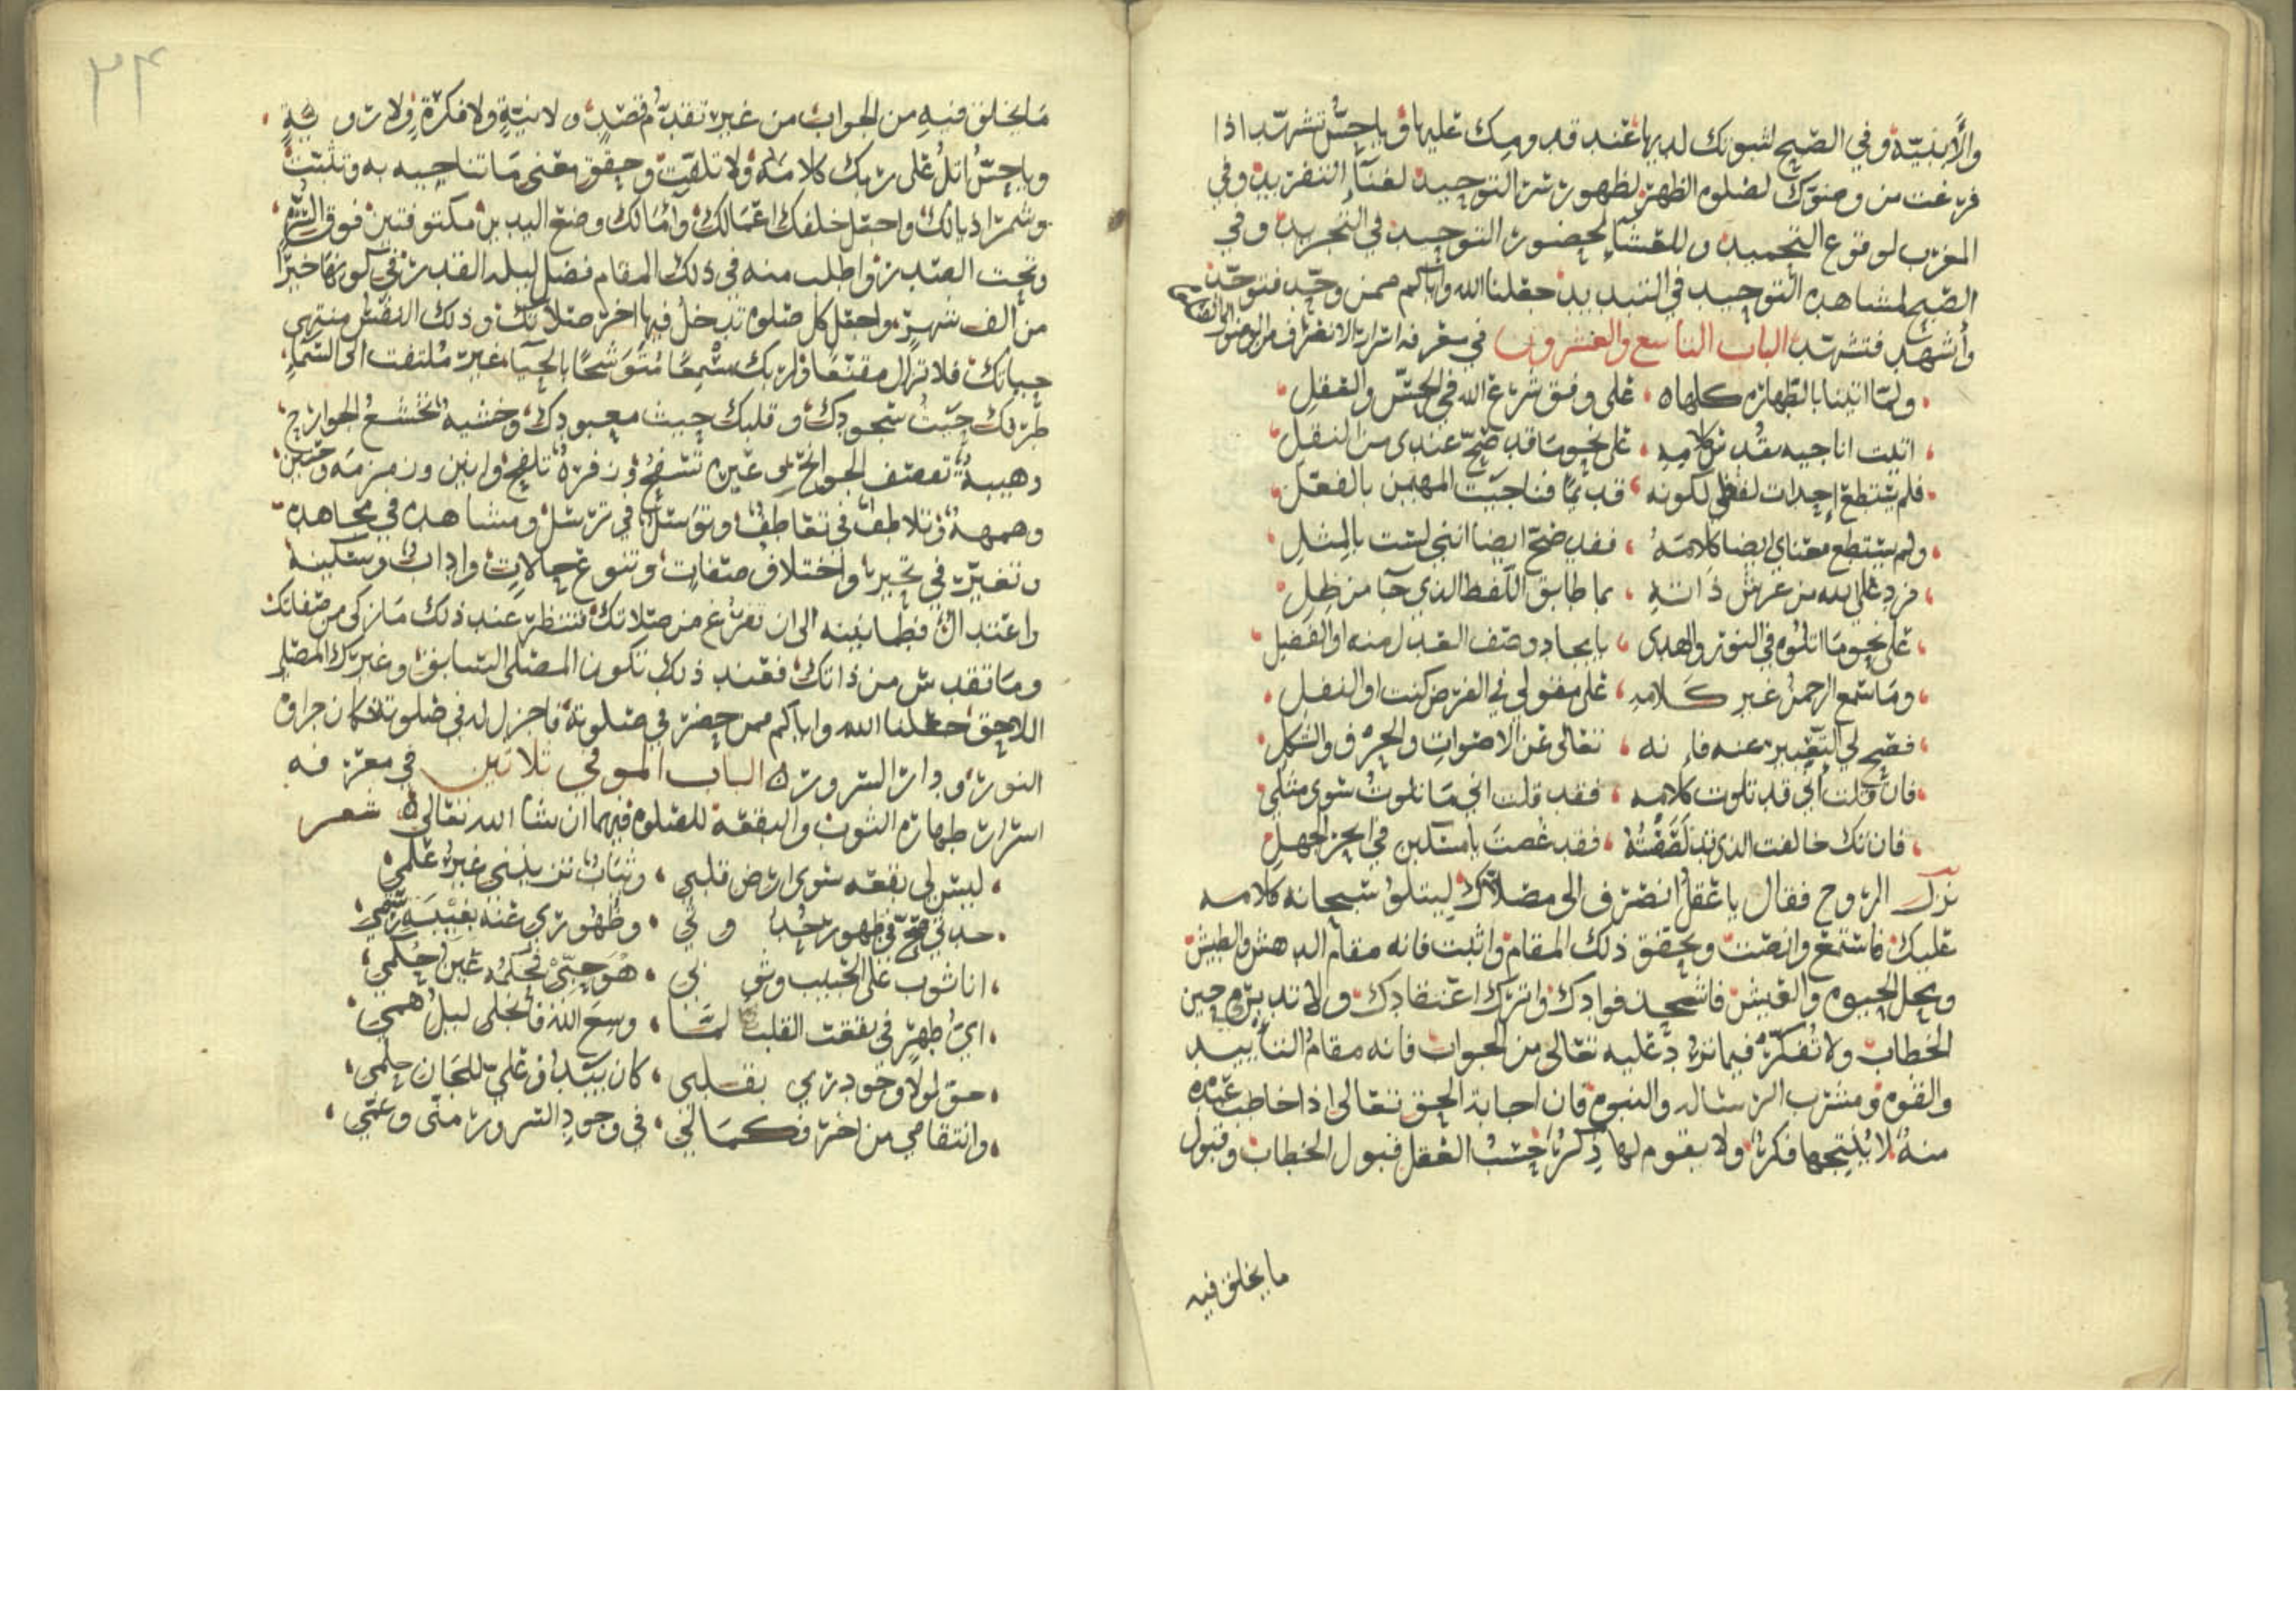 والأبنيّة وفي الصبح لثبوتك لديها عند قدومك عليها ويا حسّ تشهّد اذا
فرغت من وضوّك لصلوه الظهر لظهور سر التوحيد لفنآء التفريد وفي
المغرب لوقوع التحميد وللعشآء لحضور التوحيد في التجريد وفي
الصبح لمشاهده التوحيد في التبديد جعلنا الله واياكم ممن وحّد فتوحّد
وأشهد فتشهّد الباب التاسع والعشرون في معرفه اسرار الانصراف من الوضو الى الصلاه
ولمّا اتينا بالطهاره كلها ٥ على وفق شرع الله في الحسّ والعقل
اتيت اناجيه بقدس كلامه على نحو ما قد صحّ عندي من النقل
فلم يستطع إحداث لفظي لكونه قديمًا فناجيت المهيمن بالفعل
ولم يستطع معناي ايضا كلامَهُ فقد صحّ ايضا انني لست بالمثل
فرد على بده من عرش ذاته بما طابق اللفظ الذي جا من ظل
على نحو ما اتلوه في النور والهدى بايجاد وصف العدل منه او الفضل
وما سمع الرحمن غير كلامه على مقولي في الفرض كنت او النفل
فصح لي التعبير عنه فانه تعالى عن الاصوات والحرف والشكل
فان قلت اني قد تلوت كلامه فقد قلت اني ما تلوت سوى مثلي
فان تك خالفت الذي قد نصصته فقد غصت يا مسكين في ابحر الجهل
نزل الروح فقال يا عقل انصرف الى مصلاك ليتلو سبحانه كلامه
عليك فاستمع وانصت وتحقق ذلك المقام واثبت فانه مقام الدهش والطيش
ومحل الحيوه والعيش فاشحذ فوادك واترك اعتقادك ولا تدبره حين
الخطاب ولا تفكره فيما ترد عليه تعالى من الجواب فانه مقام التأييد
والقوه ومشرب الرساله والنبوه فان اجابه الحق تعالى اذا خاطب عبده
منه لا ينتجها فكر ولا يقوم لها ذكر حسب العقل قبول الخطاب وقبول
ما يخلق فيه
٣٤
مَا يخلق فيه من الجواب من غير تقدّم قصد ولا نيّةٍ ولا فكرةٍ ولا رويّةٍ
ويا حسّ اتلُ على ربك كلامَه ولا تلقت وحقق معنى مَا تناجيه به وتثبت
وشمر اذيالك واجعل خلفك اعمالك وآمالك وضع اليدين مكتوفتين فوق السرّه
وتحت الصدر واطلب منه في ذلك المقام فضل ليله القدر في كونها خيرًا
من الف شهر واجعل كل صلوه تدخل فيها اخر صلاتك وذلك النفس منتهى
حياتك فلا تزال مقنعًا ولربك مسمعًا متوشحًا بالحيآء غير ملتفت الى السماء
طرفك حيث سجودك وقلبك حيث معبودك وخشيه تخشع الجوارح
وهيبه تعصف الجوانح وعَبْره تسفح وزفره تلفح وانين وزمزمه وحنين
وهمهه وتلاطف في تعاطف وتوسّل في ترسل ومشاهده في مجاهده
وتغيّر في تحير واختلاف صفات وتنوع حالات واداب وسكينه
واعتدال وطمانينه الى ان تفرغ من صلاتك فتنظر عند ذلك ما زكى من صفاتك
وما تقدس من ذاتك فعند ذلك تكون المصلى السابق وغيرك المصلي
اللاحق جعلنا الله واياكم ممن حضر في صلوته فاجزل له في صلوته فكان جزاوه
النور ودار السرور ٥ الباب الموفي ثلاثين في معرفه
اسرار طهاره الثوب والبقعه للصلوه فيهما ان شا الله تعالى ٥ شعر
ليس لي بقعه سوى ارض قلبي وثياب تزينني غير علمي
حدثي صحّ في ظهور حُدوثي وظهوري عنه بغيبَهِ رسمي
انا ثوب على الحبيب وثوبي هو حبّي فحكمه عين حكمي
ايّ طهر في بقعت القلب لمّا وسع الله فانجلى ليل همي
حق لولا وجود ربي بقلبي كان بيتًا وعليّ للجان حلمي
وانتقامي من اخر فكمالي في وجود السرور منّى وعمّي